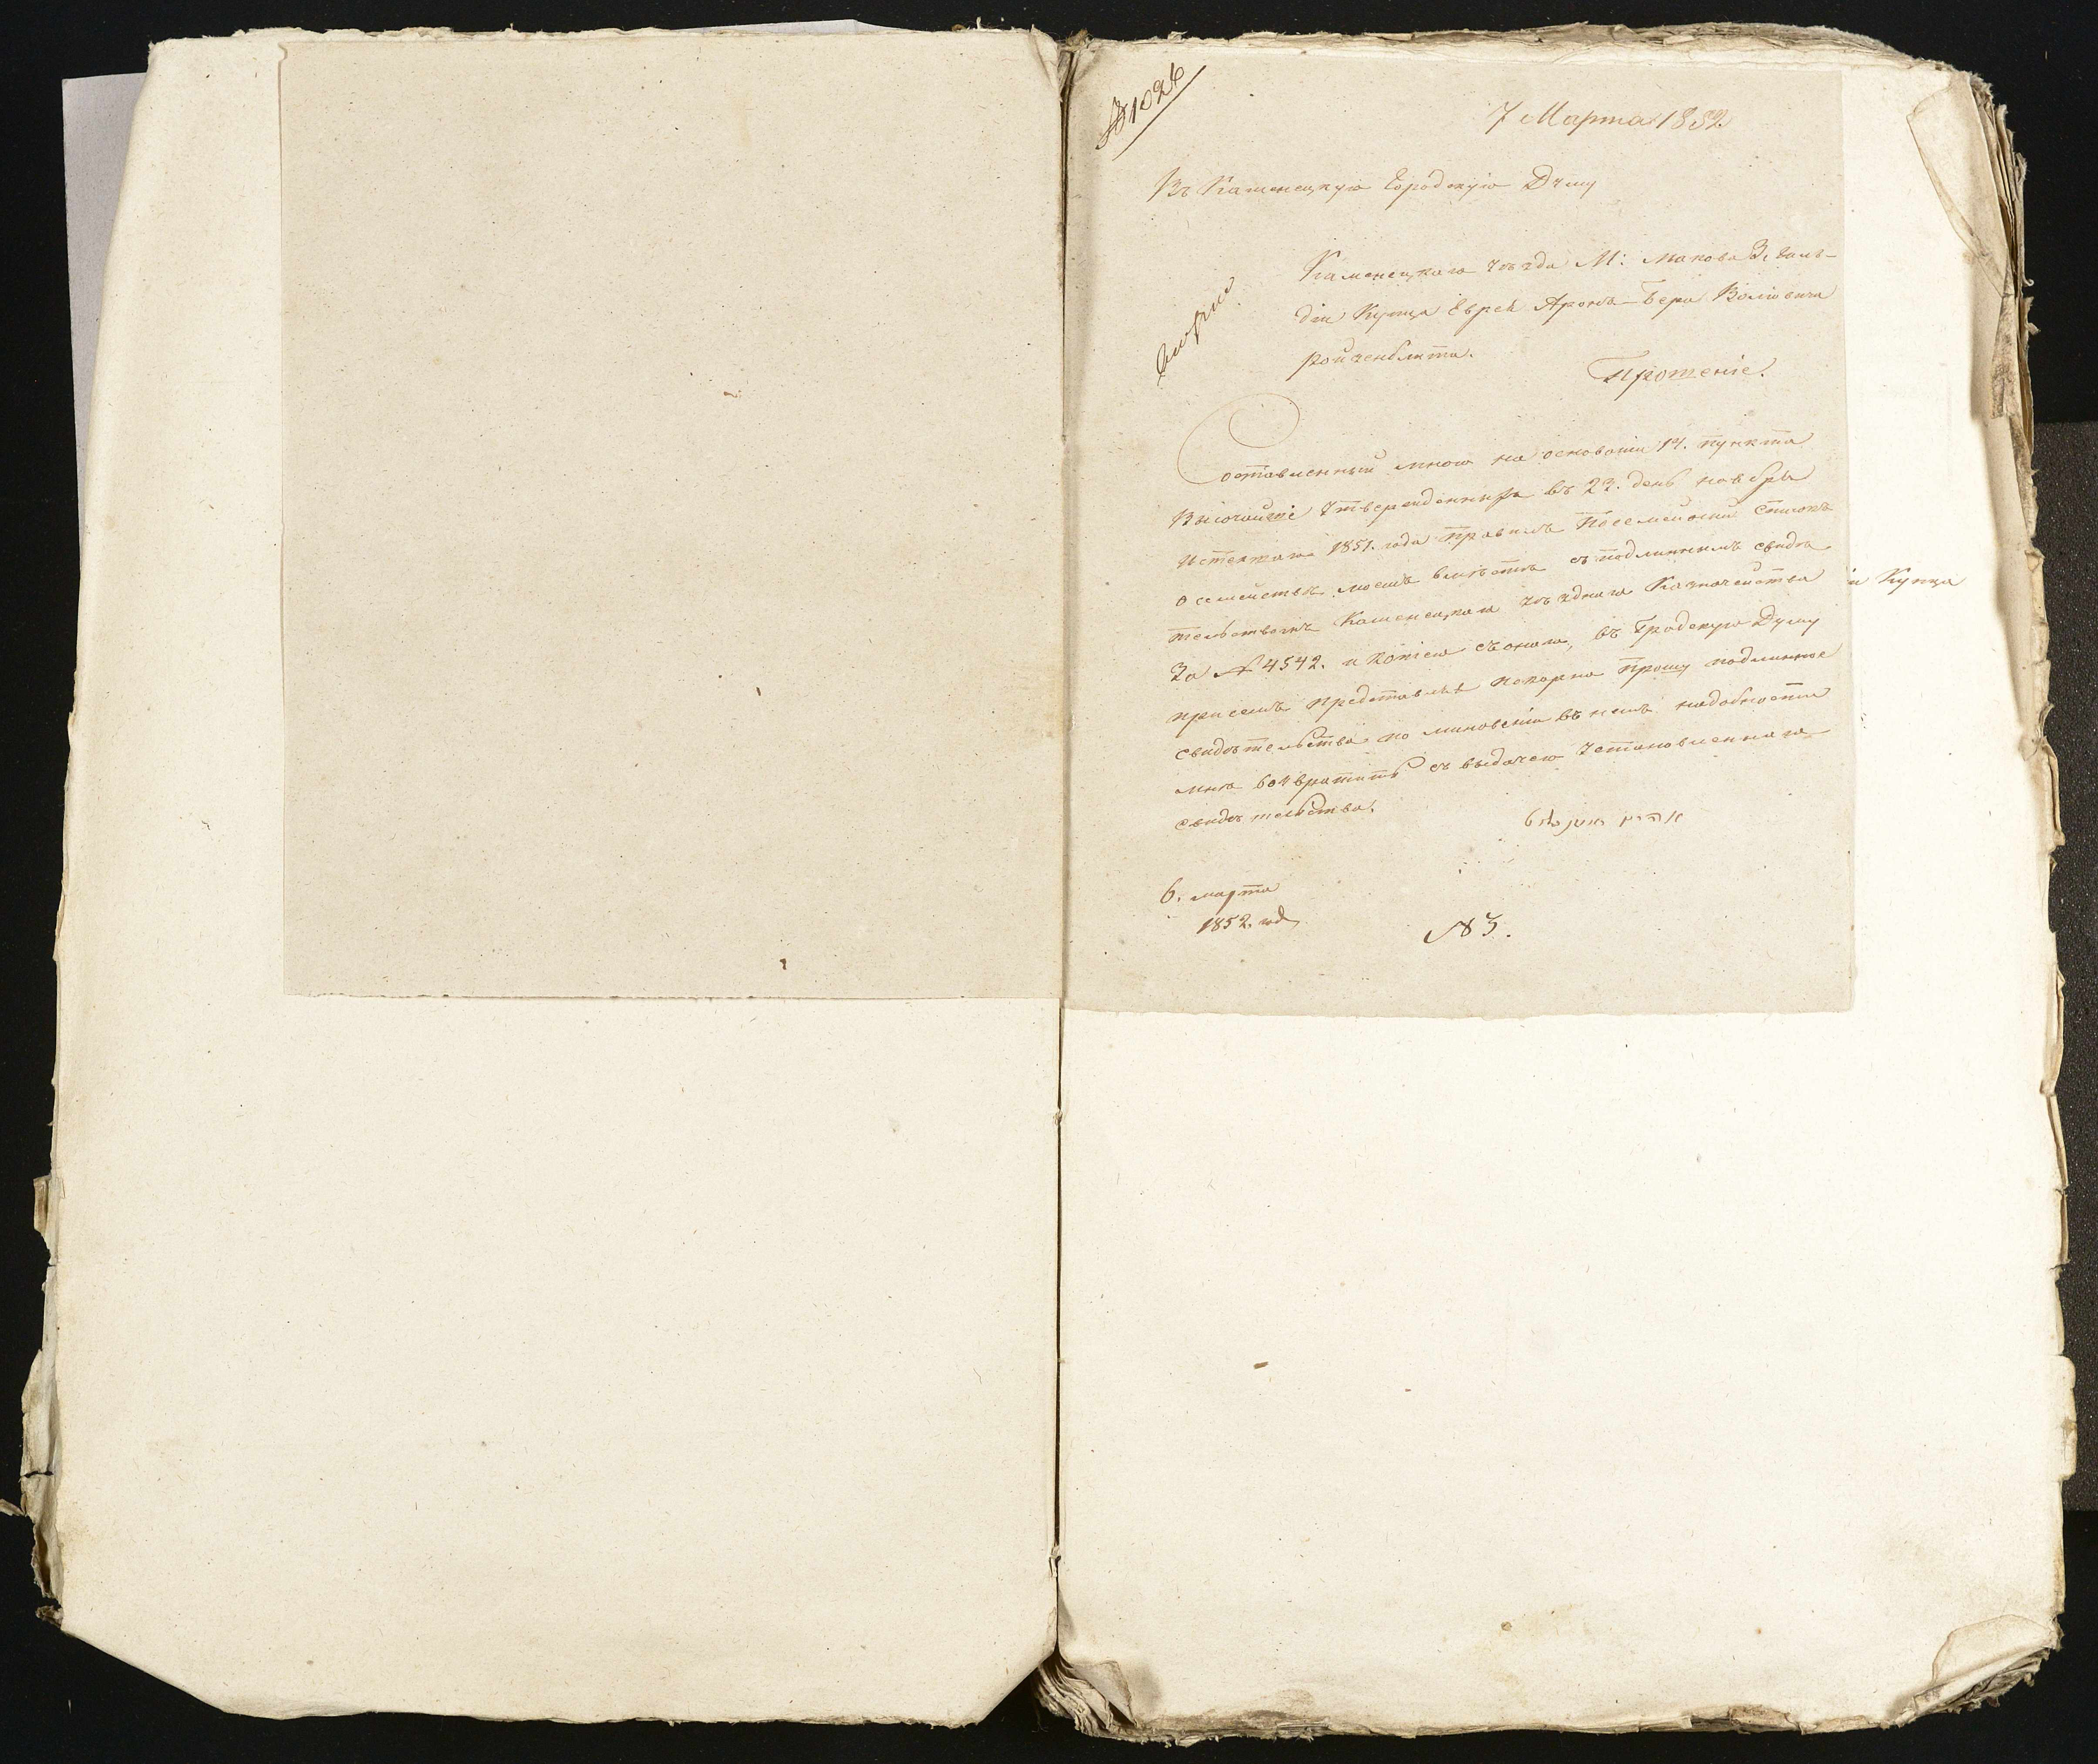 № 1024
7 Марта 1852.
Въ Каменецкую Городскую Думу
Каменецкаго уѣзда М: Макова 3, гиль-
діи Купца Еврея Арона-Бера Волковича
Ройзенблита.
Прошеніе.
Составленный мною на основаніи 14. пункта
Высочайше Утвержденныхъ въ 23. день ноября
истекшаго 1851. года правилъ Посемейный списокъ
о семействѣ моемъ вмѣстѣ съ подлиннымъ свидѣ
тельствомъ Каменецкаго уѣзднаго Казначейства
За № 4542. и копіею съ онаго, въ Градскую Думу
при семъ представляя покорно прошу подлинное
свидѣтельство по миновеніи въ немъ надобности
мнѣ возвратить съ выдачею установленнаго
свидѣтельства.
6. марта
1852. года
№ 3.
и Купца